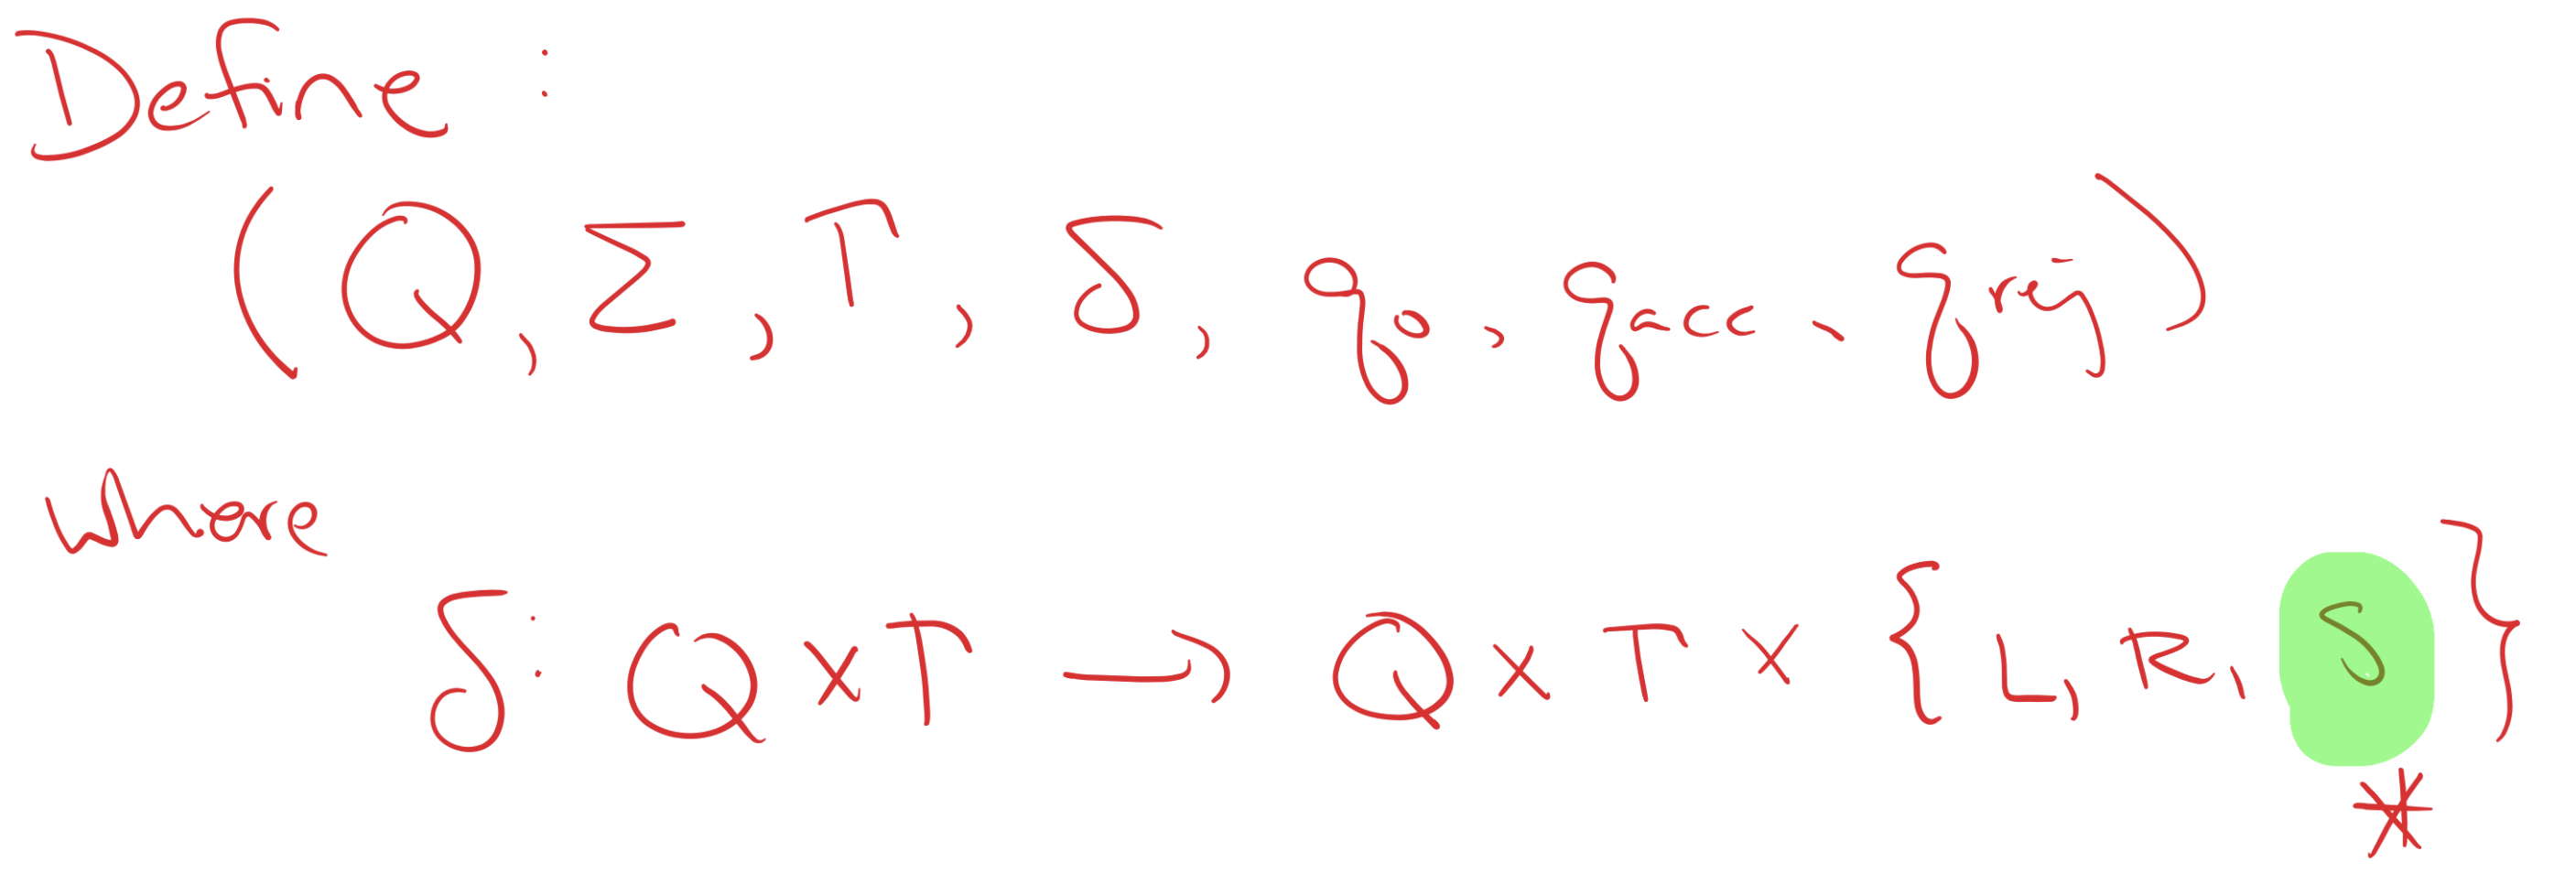 Define :
(Q, Σ, Γ, δ, q₀, q_acc, q_rej)
Where
δ: Q × Γ → Q × Γ × {L, R, S}
*